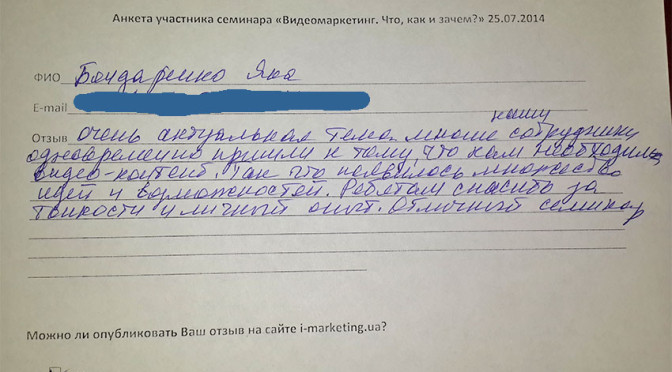 Анкета участника семинара «Видеомаркетинг. Что, как и зачем?» 25.07.2014
ФИО Бондаренко Яна
E-mail
нашу
Отзыв Очень актуальная тема. многие сотрудники
одновременно пришли к тому, что нам необходим
видео-контент. Так что появилось множество
идей и возможностей. Ребятам спасибо за
тонкости и личный опыт. Отличный семинар
Можно ли опубликовать Ваш отзыв на сайте i-marketing.ua?